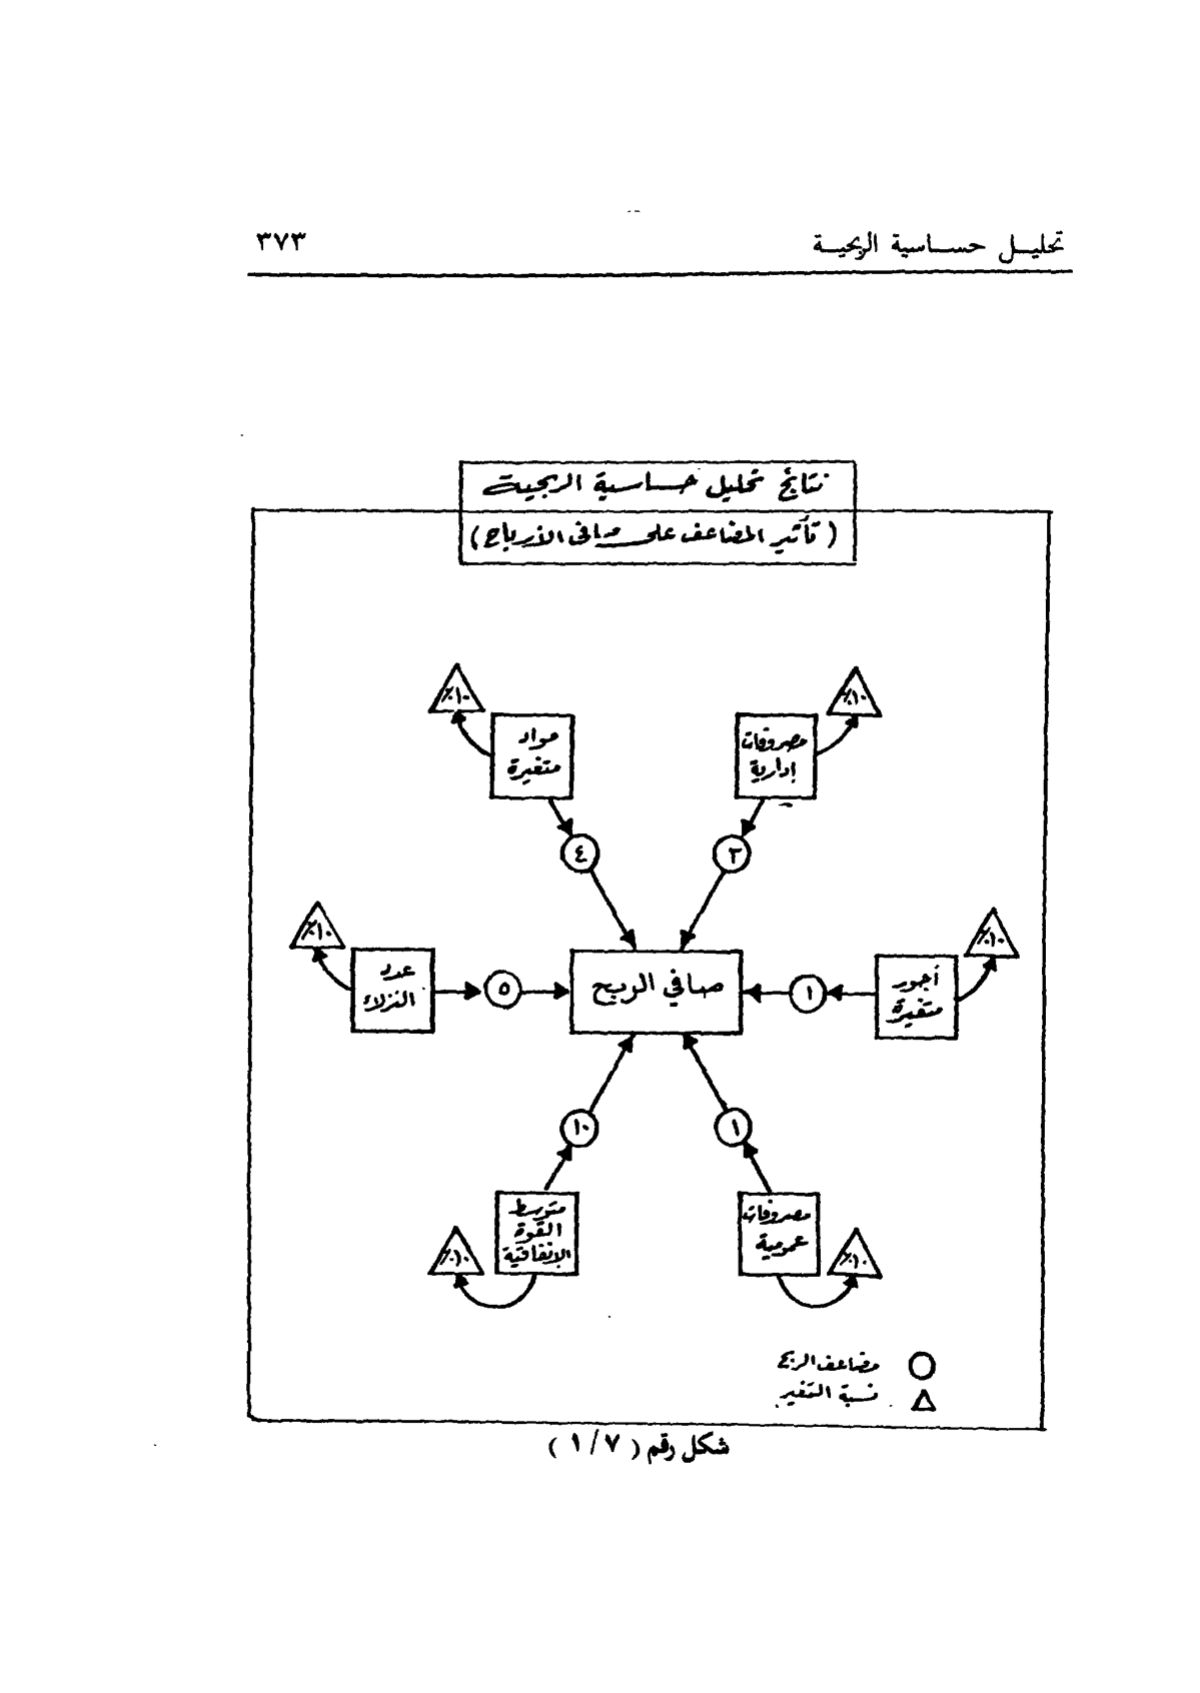 تحليل حساسية الربحية
٣٧٣
نتائج تحليل حساسية الربحية
(تأثير المضاعف على صافى الأرباح)
٪١٠
٪١٠
مواد
متغيرة
مصروفات
إدارية
٤
٣
٪١٠
٪١٠
عدد
النزلاء
٥
صافي الربح
١
أجور
متغيرة
١٠
١
متوسط
القوة
الإنفاقية
مصروفات
عمومية
٪١٠
٪١٠
مضاعف الربح
نسبة التغير
شكل رقم (١/٧)